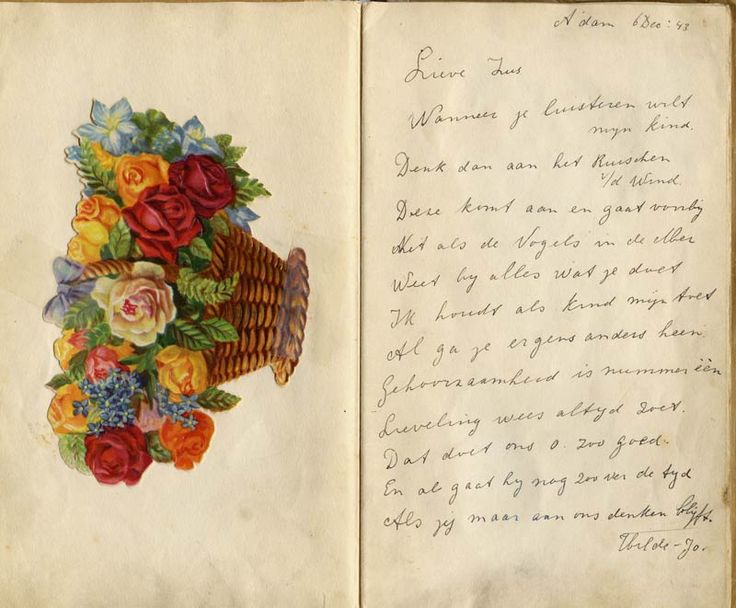 A'dam 6 Dec: 43
Lieve Zus
Wanneer je luisteren wilt
mijn kind.
Denk dan aan het Ruischen
v/d Wind.
Deze komt aan en gaat voorbij
Net als de Vogels in de
Weet hij alles wat je doet
Ik houdt als kind mijn
Al ga je ergens anders heen.
Gehoorzaamheid is nummer één
Lieveling wees altijd zoet.
Dat doet ons o. zoo goed.
En al gaat hij nog zoo ver de tijd
Als jij maar aan ons denken blijft.